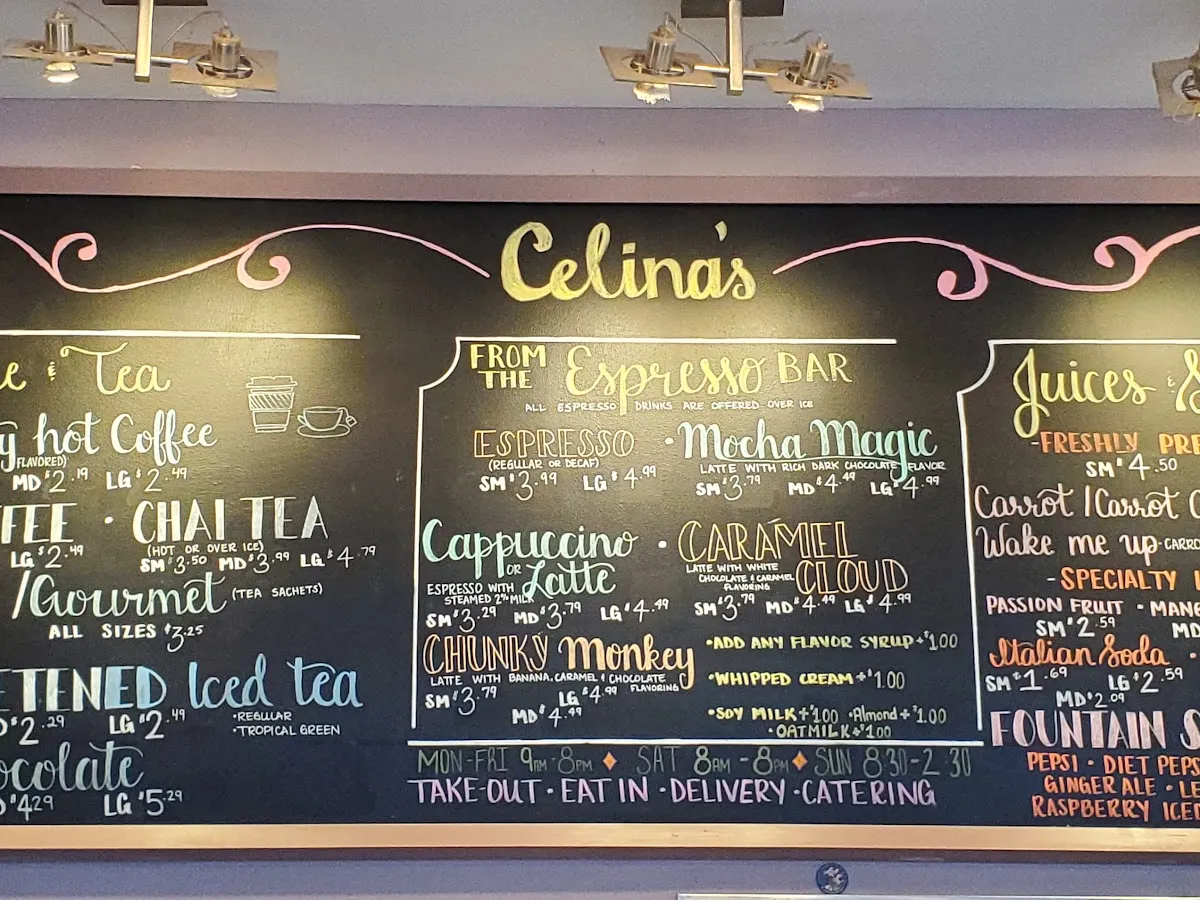 Celina's
Tea
hot Coffee
FLAVORED)
MD $2.19 LG $2.49
· CHAI TEA
(HOT OR OVER ICE)
LG $2.49 SM $3.50 MD $3.99 LG $4.79
/Gourmet (TEA SACHETS)
ALL SIZES $3.25
Iced tea
$2.29 LG $2.49
·REGULAR
·TROPICAL GREEN
$4.29 LG $5.29
FROM THE Espresso BAR
ALL ESPRESSO DRINKS ARE OFFERED OVER ICE
ESPRESSO
(REGULAR OR DECAF)
SM $3.99 LG $4.99
· Mocha Magic
LATTE WITH RICH DARK CHOCOLATE FLAVOR
SM $3.79 MD $4.49 LG $4.99
Cappuccino
OR Latte
ESPRESSO WITH
STEAMED 2% MILK
SM $3.29 MD $3.79 LG $4.49
· CARAMEL
CLOUD
LATTE WITH WHITE
CHOCOLATE & CARAMEL
FLAVORING
SM $3.79 MD $4.49 LG $4.99
CHUNKY Monkey
LATTE WITH BANANA, CARAMEL & CHOCOLATE
FLAVORING
SM $3.79 LG $4.99
MD $4.49
·ADD ANY FLAVOR SYRUP +$1.00
·WHIPPED CREAM +$1.00
·SOY MILK +$1.00 ·Almond +$1.00
·OATMILK +$1.00
MON-FRI 9AM-8PM SAT 8AM-8PM SUN 8:30-2:30
TAKE-OUT · EAT IN · DELIVERY · CATERING
Juices &
-FRESHLY
SM $4.50
Carrot / Carrot
Wake me up -
-SPECIALTY
PASSION FRUIT ·
SM $2.59
Italian Soda ·
SM $1.69 LG $2.59
MD $2.09
FOUNTAIN
PEPSI · DIET
GINGER ALE ·
RASPBERRY